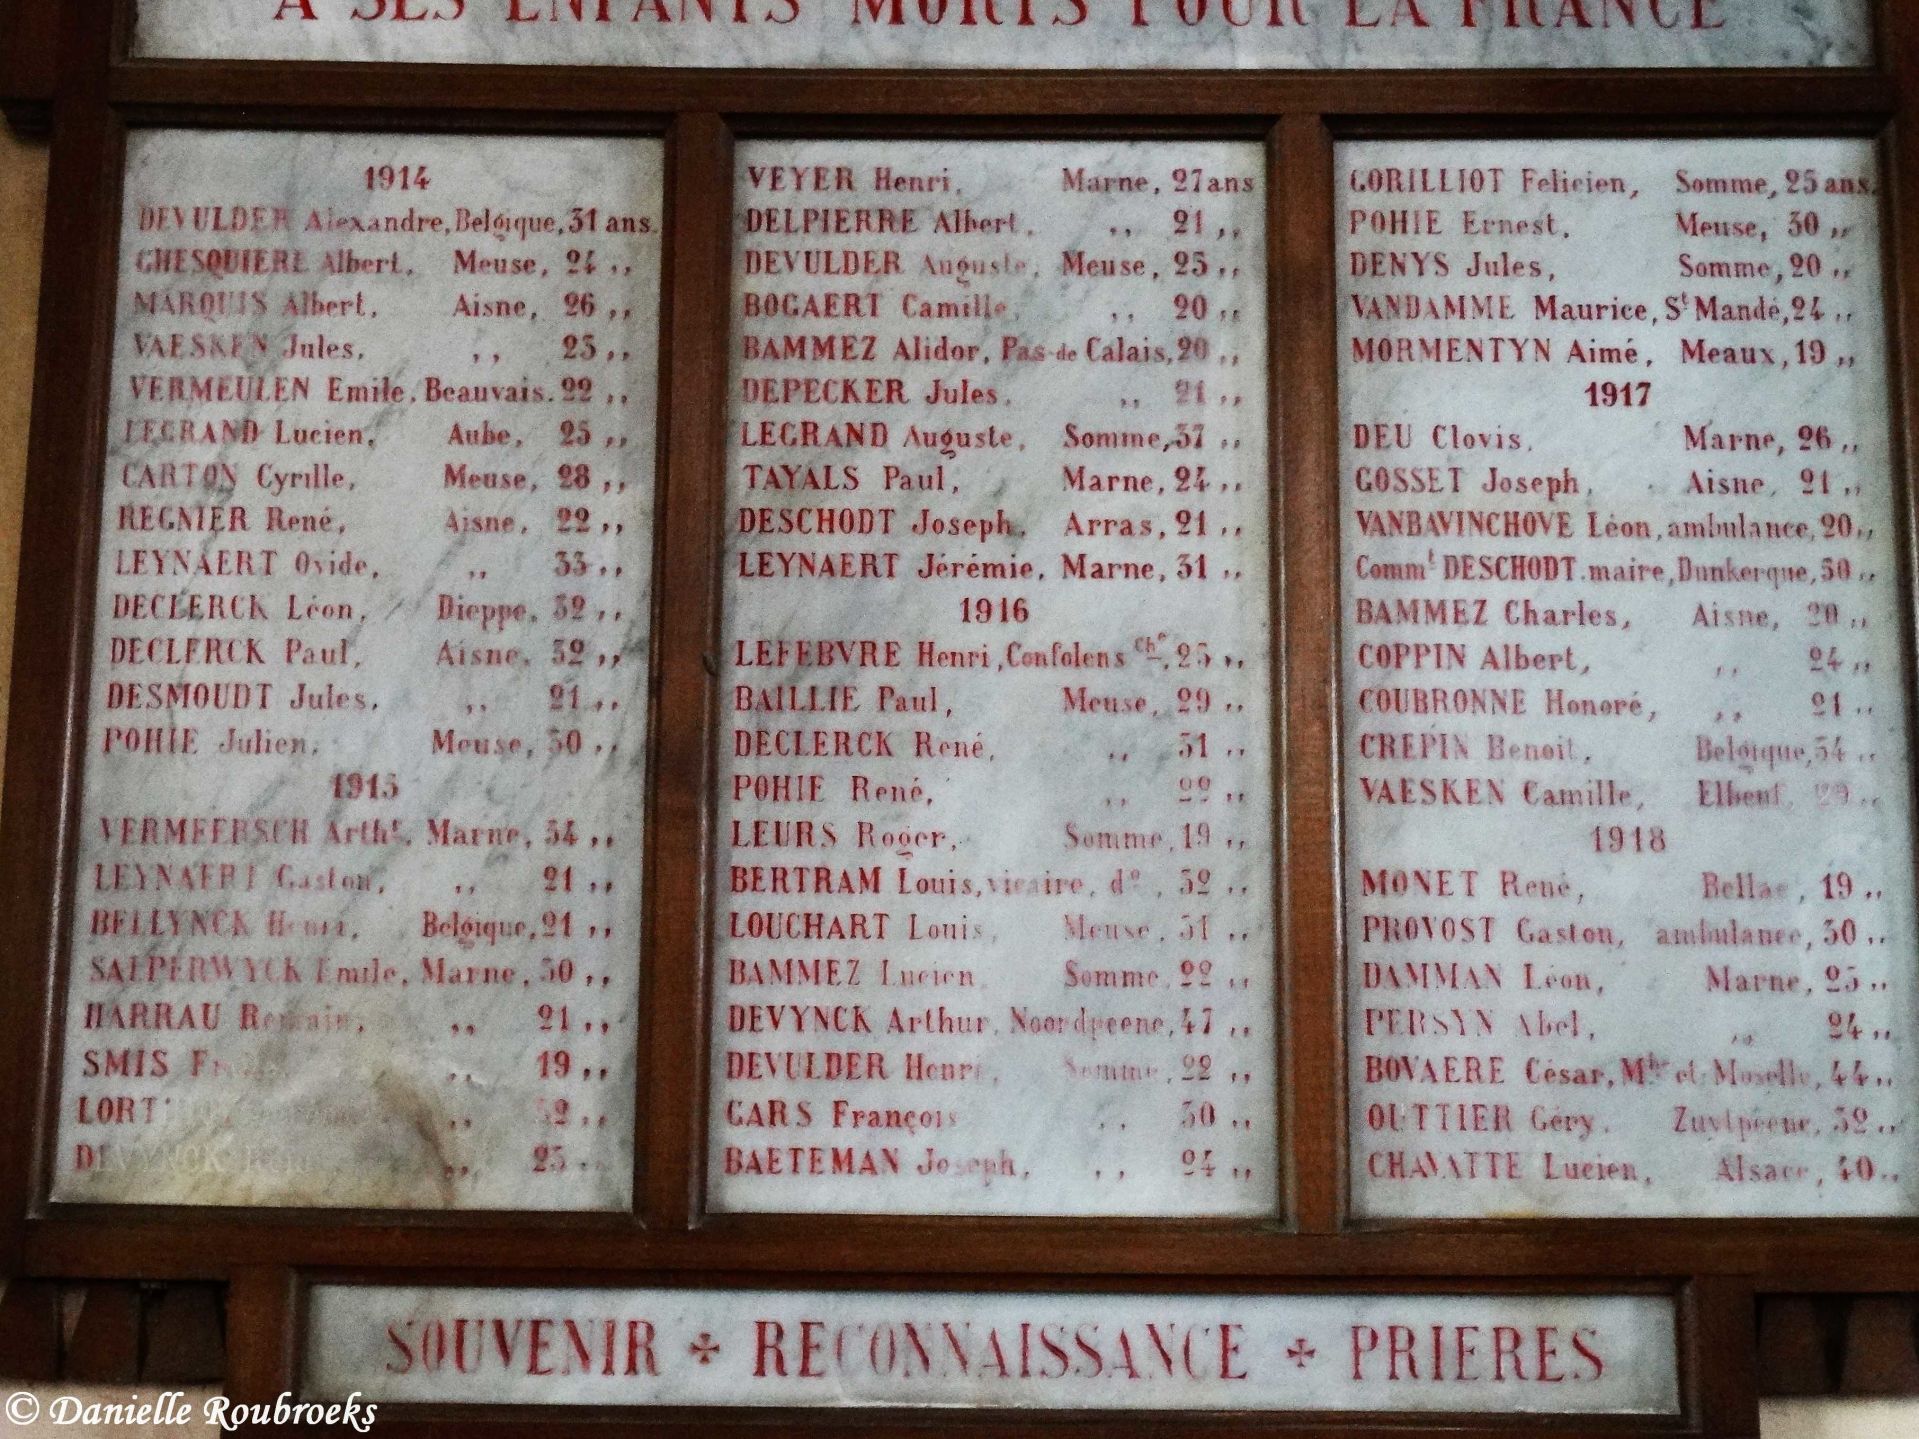 A SES ENFANTS MORTS POUR LA FRANCE
1914
DEVULDER Alexandre, Belgique, 31 ans.
GHESQUIERE Albert, Meuse, 24 ,,
MARQUIS Albert, Aisne, 26 ,,
VAESKEN Jules, ,, 25 ,,
VERMEULEN Emile, Beauvais. 22 ,,
LEGRAND Lucien, Aube, 25 ,,
CARTON Cyrille, Meuse, 28 ,,
REGNIER René, Aisne, 22 ,,
LEYNAERT Ovide, ,, 33 ,,
DECLERCK Léon, Dieppe, 32 ,,
DECLERCK Paul, Aisne, 32 ,,
DESMOUDT Jules, ,, 21 ,,
POHIE Julien, Meuse, 30 ,,
1915
VERMEERSCH Arthr, Marne, 34 ,,
LEYNAERT Gaston, ,, 21 ,,
BELLYNCK Henri, Belgique, 21 ,,
SAEPERWYCK Emile, Marne, 30 ,,
HARRAU Romain, ,, 21 ,,
SMIS ,, 19 ,,
,, 32 ,,
DEVYNCK ,, 25 ,,
VEYER Henri, Marne, 27 ans
DELPIERRE Albert, ,, 21 ,,
DEVULDER Auguste, Meuse, 25 ,,
BOGAERT Camille, ,, 20 ,,
BAMMEZ Alidor, Pas-de Calais, 20 ,,
DEPECKER Jules, ,, 21 ,,
LEGRAND Auguste, Somme, 37 ,,
TAYALS Paul, Marne, 24 ,,
DESCHODT Joseph, Arras, 21 ,,
LEYNAERT Jérémie, Marne, 31 ,,
1916
LEFEBVRE Henri, Confolens Che, 25 ,,
BAILLIE Paul, Meuse, 29 ,,
DECLERCK René, ,, 31 ,,
POHIE René, ,, 22 ,,
LEURS Roger, Somme, 19 ,,
BERTRAM Louis, vicaire, do, 32 ,,
LOUCHART Louis, Meuse, 31 ,,
BAMMEZ Lucien, Somme, 22 ,,
DEVYNCK Arthur, Noordpeene, 47 ,,
DEVULDER Henri, Somme, 22 ,,
GARS François ,, 30 ,,
BAETEMAN Joseph, ,, 24 ,,
GORILLIOT Felicien, Somme, 25 ans.
POHIE Ernest, Meuse, 30 ,,
DENYS Jules, Somme, 20 ,,
VANDAMME Maurice, St Mandé, 24 ,,
MORMENTYN Aimé, Meaux, 19 ,,
1917
DEU Clovis, Marne, 26 ,,
GOSSET Joseph, Aisne, 21 ,,
VANBAVINCHOVE Léon, ambulance, 20 ,,
Commt DESCHODT, maire, Dunkerque, 50 ,,
BAMMEZ Charles, Aisne, 20 ,,
COPPIN Albert, ,, 24 ,,
COUBRONNE Honoré, ,, 21 ,,
CREPIN Benoit, Belgique, 34 ,,
VAESKEN Camille, Elbeuf, 29 ,,
1918
MONET René, Bellac, 19 ,,
PROVOST Gaston, ambulance, 30 ,,
DAMMAN Léon, Marne, 25 ,,
PERSYN Abel, ,, 24 ,,
BOVAERE César, Mthe et Moselle, 44 ,,
OUTTIER Géry, Zuytpeene, 32 ,,
CHAVATTE Lucien, Alsace, 40 ,,
SOUVENIR + RECONNAISSANCE + PRIERES
© Danielle Roubroeks